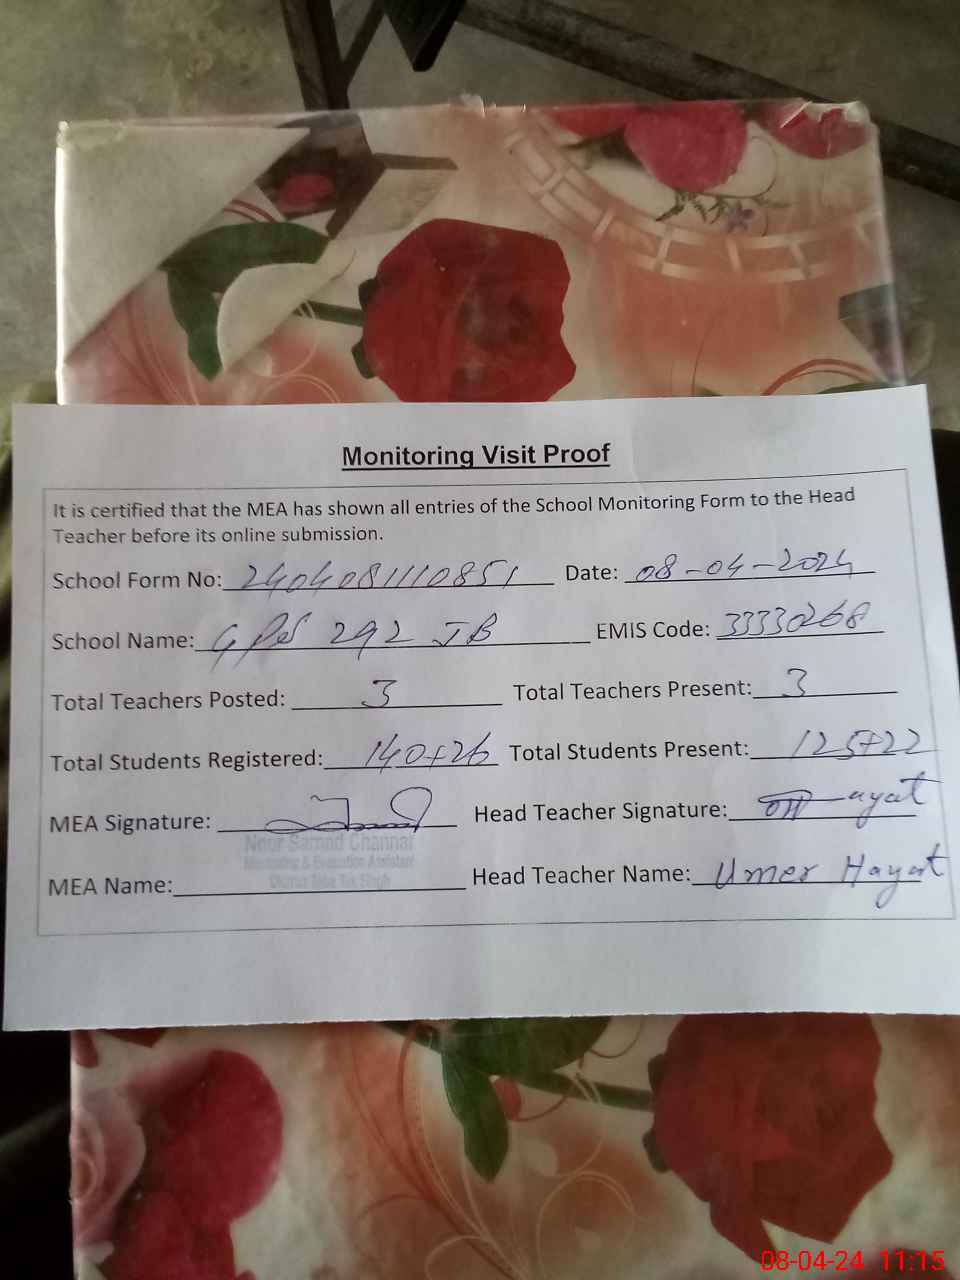 Monitoring Visit Proof
It is certified that the MEA has shown all entries of the School Monitoring Form to the Head
Teacher before its online submission.
School Form No: 2404081110851 Date: 08-04-2024
School Name: GPS 292 JB EMIS Code: 33330268
Total Teachers Posted: 3 Total Teachers Present: 3
Total Students Registered: 140+26 Total Students Present: 125+22
MEA Signature: Head Teacher Signature:
Noor Samad Channar
Monitoring & Evaluation Assistant
District Toba Tek Singh
MEA Name: Head Teacher Name: Umer Hayat
08-04-24 11:15